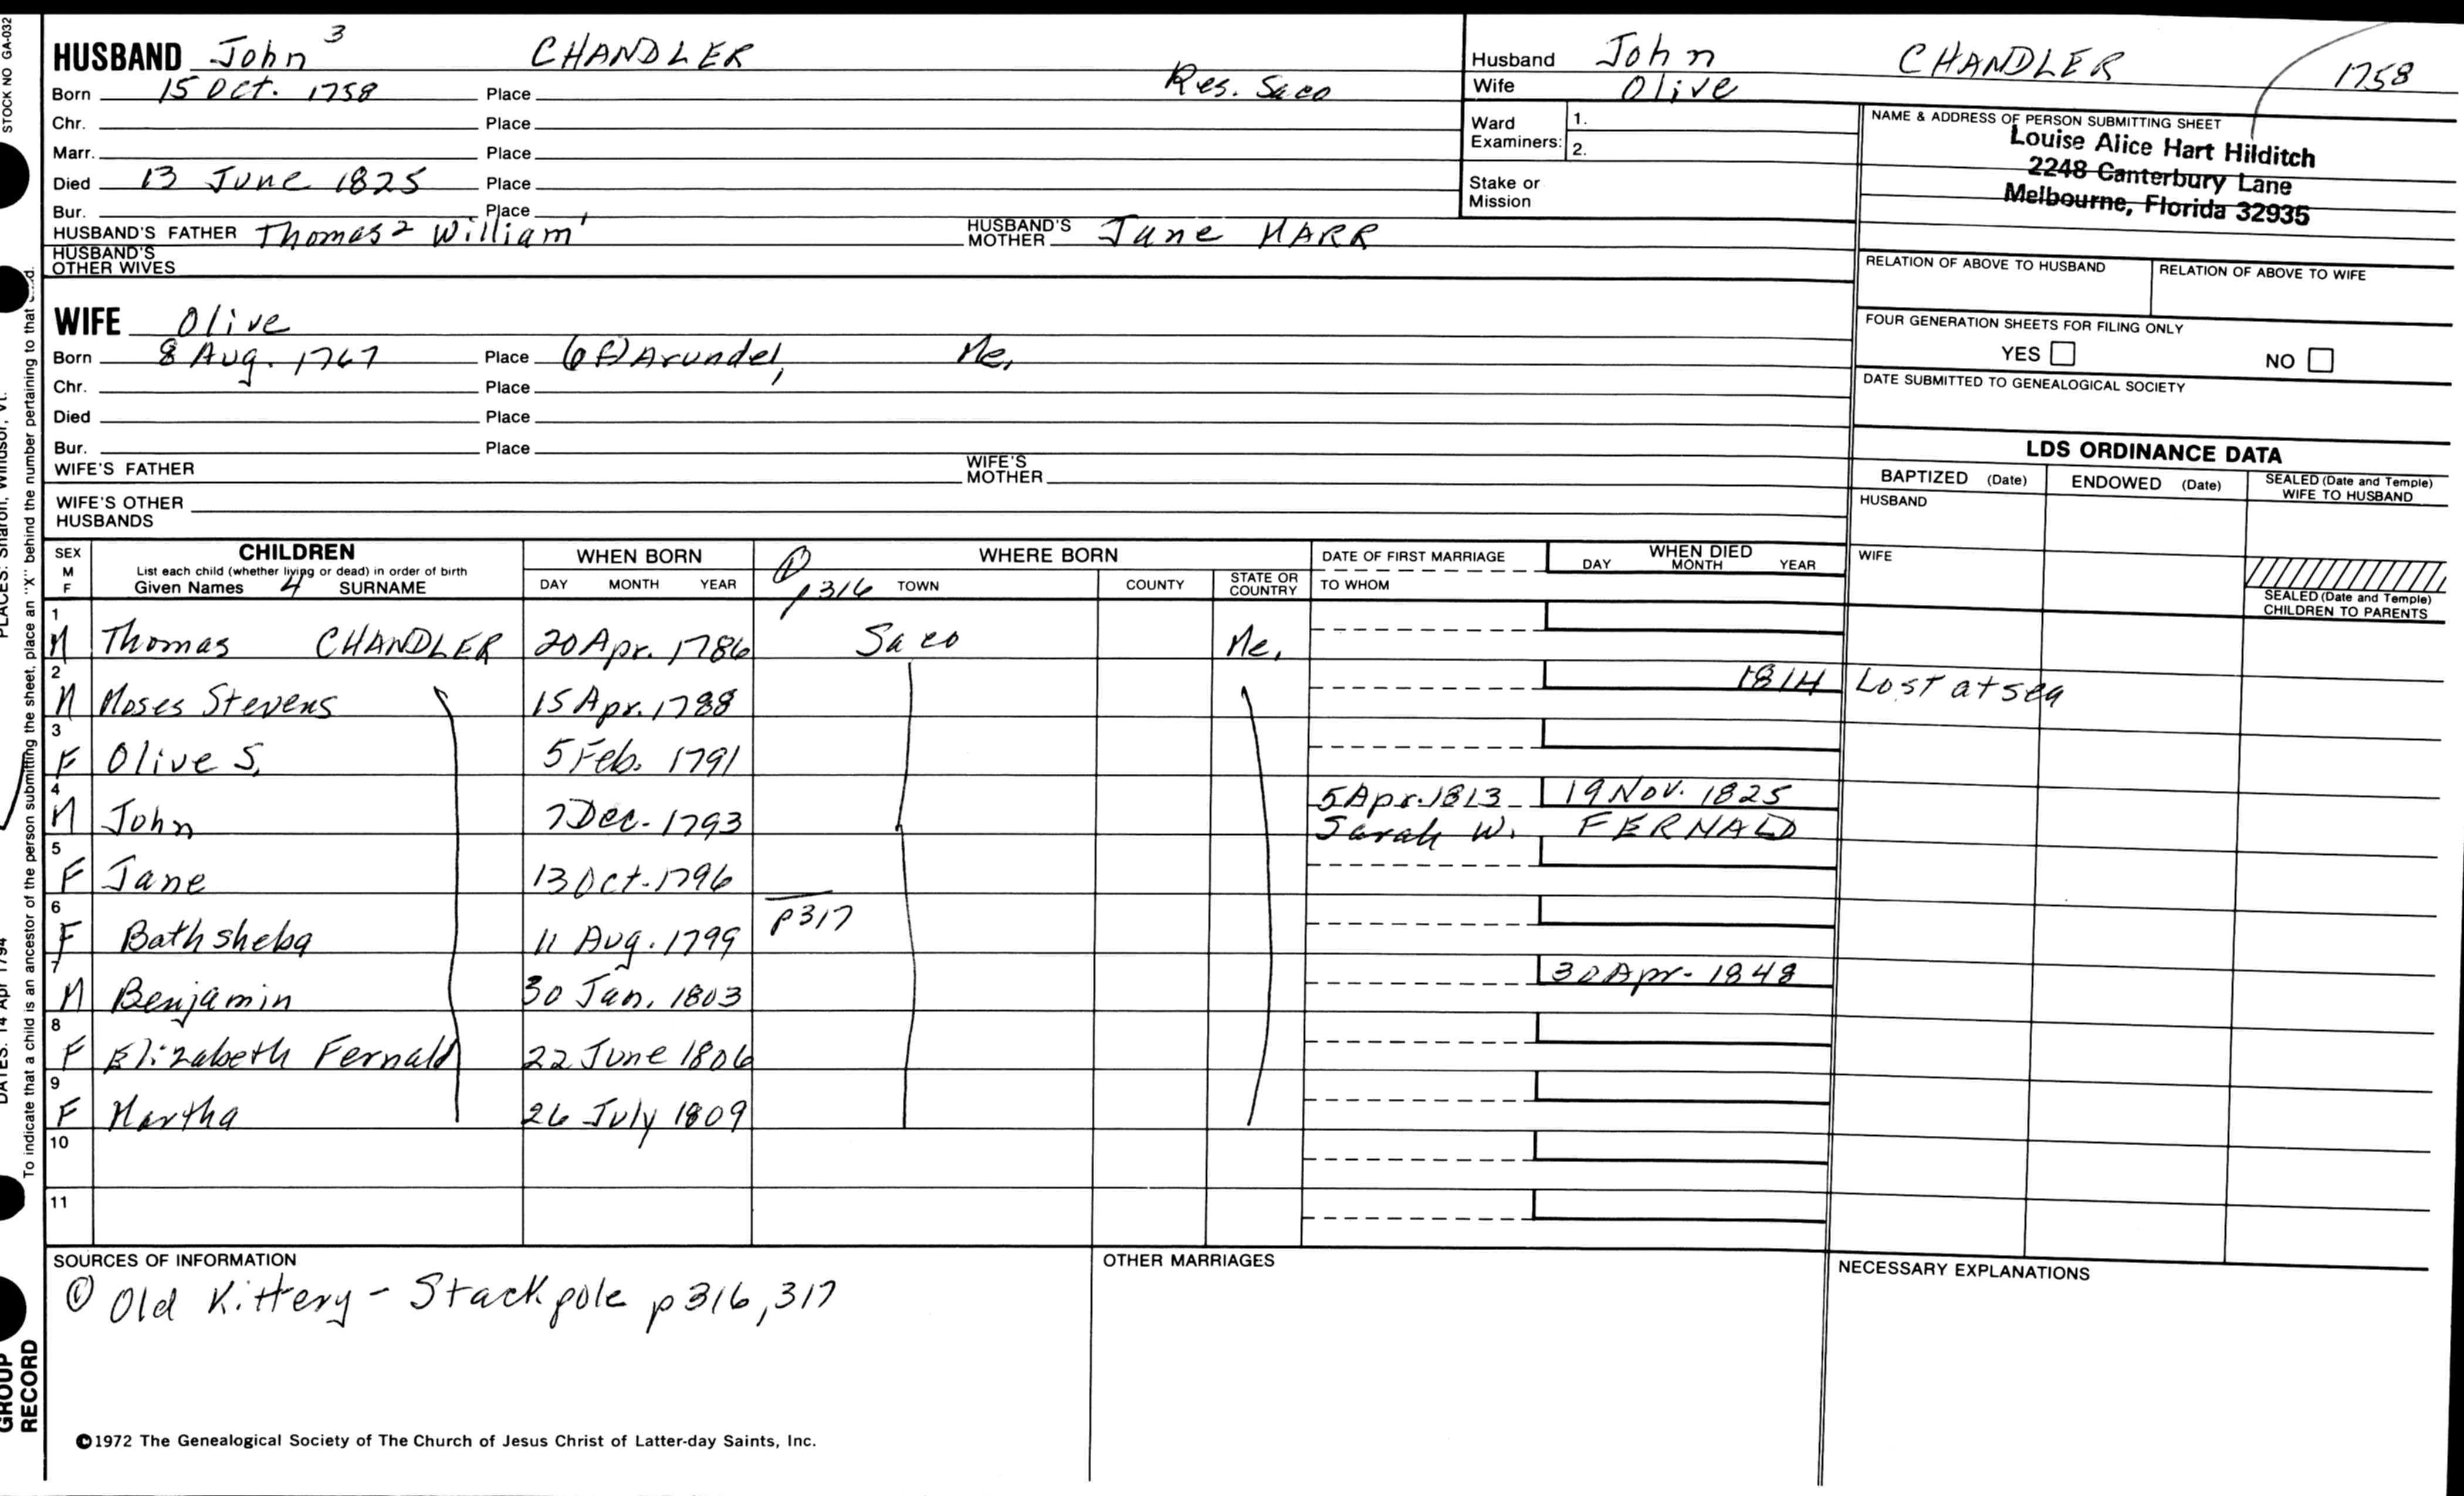 STOCK NO GA-032
HUSBAND John 3 CHANDLER
Born 15 Oct. 1758 Place Res. Saco
Chr. Place
Marr. Place
Died 13 June 1825 Place
Bur. Place
HUSBAND'S FATHER Thomas 2 William 1 HUSBAND'S MOTHER Jane MARR
HUSBAND'S OTHER WIVES
Husband John CHANDLER 1758
Wife Olive
Ward Examiners: 1.
2.
Stake or Mission
NAME & ADDRESS OF PERSON SUBMITTING SHEET
Louise Alice Hart Hilditch
2248 Canterbury Lane
Melbourne, Florida 32935
RELATION OF ABOVE TO HUSBAND RELATION OF ABOVE TO WIFE
FOUR GENERATION SHEETS FOR FILING ONLY
YES NO
DATE SUBMITTED TO GENEALOGICAL SOCIETY
WIFE Olive
Born 8 Aug. 1767 Place (of) Arundel, Me.
Chr. Place
Died Place
Bur. Place
WIFE'S FATHER WIFE'S MOTHER
WIFE'S OTHER HUSBANDS
LDS ORDINANCE DATA
BAPTIZED (Date) ENDOWED (Date) SEALED (Date and Temple) WIFE TO HUSBAND
HUSBAND
WIFE
SEALED (Date and Temple) CHILDREN TO PARENTS
SEX M F CHILDREN WHEN BORN WHERE BORN DATE OF FIRST MARRIAGE WHEN DIED
List each child (whether living or dead) in order of birth
Given Names 4 SURNAME DAY MONTH YEAR ① p316 TOWN COUNTY STATE OR COUNTRY TO WHOM DAY MONTH YEAR
1 M Thomas CHANDLER 20 Apr. 1786 Saco Me.
2 M Moses Stevens 15 Apr. 1788 1814 Lost at sea
3 F Olive S. 5 Feb. 1791
4 M John 7 Dec. 1793 5 Apr. 1813 19 Nov. 1825
Sarah W. FERNALD
5 F Jane 13 Oct. 1796
6 F Bathsheba 11 Aug. 1799 p317
7 M Benjamin 30 Jan. 1803 30 Apr. 1848
8 F Elizabeth Fernald 22 June 1806
9 F Martha 26 July 1809
10
11
SOURCES OF INFORMATION
① Old Kittery - Stackpole p316, 317
OTHER MARRIAGES
NECESSARY EXPLANATIONS
©1972 The Genealogical Society of The Church of Jesus Christ of Latter-day Saints, Inc.
To indicate that a child is an ancestor of the person submitting the sheet, place an "X" behind the number pertaining to that
PLACES: Sharon, Windsor, Vt.
DATES: 14 Apr 1794
GROUP RECORD